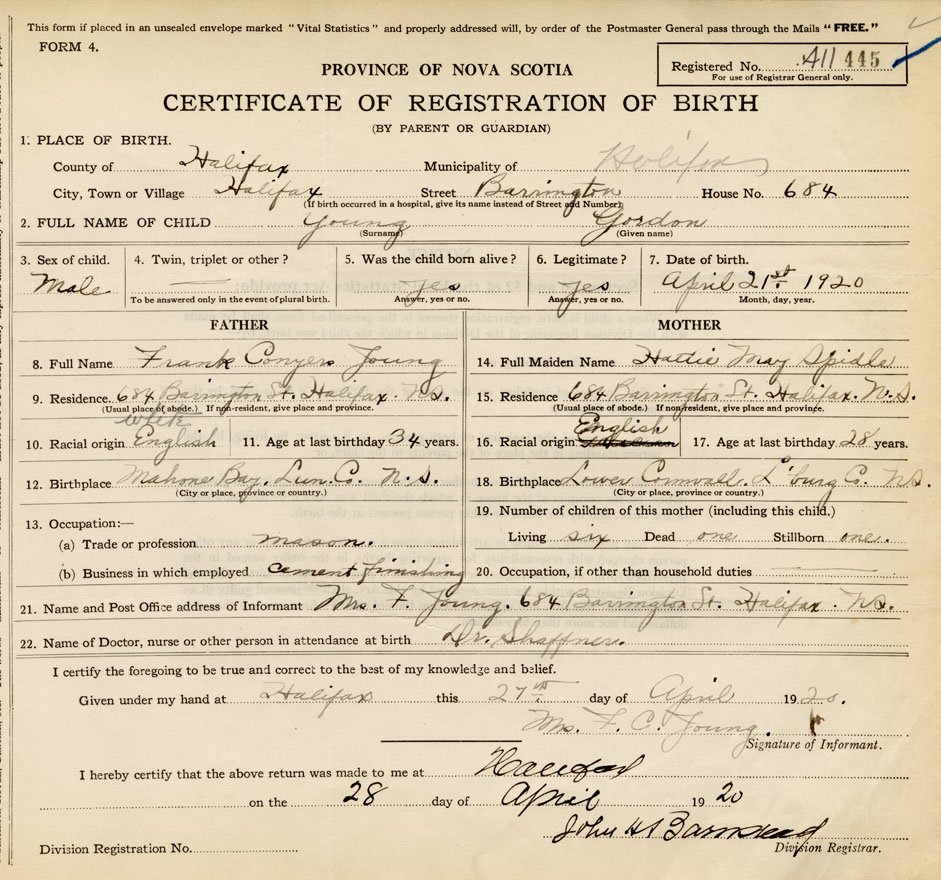 This form if placed in an unsealed envelope marked "Vital Statistics" and properly addressed will, by order of the Postmaster General pass through the Mails "FREE."
FORM 4.
Registered No. A11 445
For use of Registrar General only.
PROVINCE OF NOVA SCOTIA
CERTIFICATE OF REGISTRATION OF BIRTH
(BY PARENT OR GUARDIAN)
1. PLACE OF BIRTH.
County of Halifax Municipality of Halifax
City, Town or Village Halifax Street Barrington House No. 684
(If birth occurred in a hospital, give its name instead of Street and Number)
2. FULL NAME OF CHILD Young Gordon
(Surname) (Given name)
3. Sex of child. 4. Twin, triplet or other? 5. Was the child born alive? 6. Legitimate? 7. Date of birth.
Male — yes yes April 21st 1920
To be answered only in the event of plural birth. Answer, yes or no. Answer, yes or no. Month, day, year.
FATHER MOTHER
8. Full Name Frank Conyers Young 14. Full Maiden Name Hattie May Spidle
9. Residence. 684 Barrington St. Halifax. N.S. 15. Residence 684 Barrington St. Halifax. N.S.
(Usual place of abode.) If non-resident, give place and province. (Usual place of abode.) If non-resident, give place and province.
white
10. Racial origin English 11. Age at last birthday 34 years. 16. Racial origin English 17. Age at last birthday 28 years.
12. Birthplace Mahone Bay. Lun. Co. N.S. 18. Birthplace Lower Cornwall. L'burg Co. N.S.
(City or place, province or country.) (City or place, province or country.)
13. Occupation:— 19. Number of children of this mother (including this child.)
(a) Trade or profession mason. Living six Dead one Stillborn one.
(b) Business in which employed cement finishing 20. Occupation, if other than household duties
21. Name and Post Office address of Informant Mrs. F. Young. 684 Barrington St. Halifax. N.S.
22. Name of Doctor, nurse or other person in attendance at birth Dr. Shaffner.
I certify the foregoing to be true and correct to the best of my knowledge and belief.
Given under my hand at Halifax this 27th day of April 1920.
Mrs. F. C. Young.
Signature of Informant.
I hereby certify that the above return was made to me at Halifax
on the 28 day of April 1920
John H Barnstead
Division Registration No. Division Registrar.